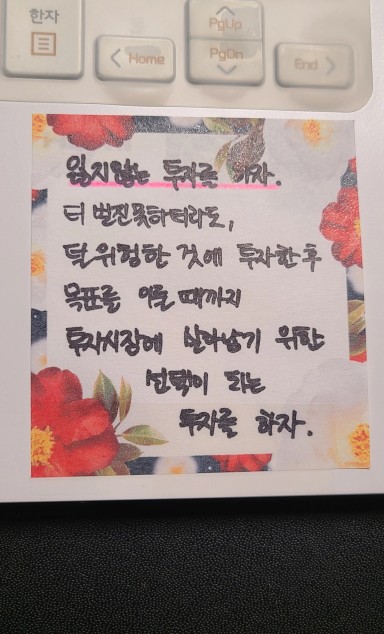 한자
Home
PgUp
PgDn
End
잃지 않는 투자를 하자.
더 벌진 못하더라도,
덜 위험한 것에 투자한 후
목표를 이룰 때까지
투자시장에 살아남기 위한
선택이 되는
투자를 하자.